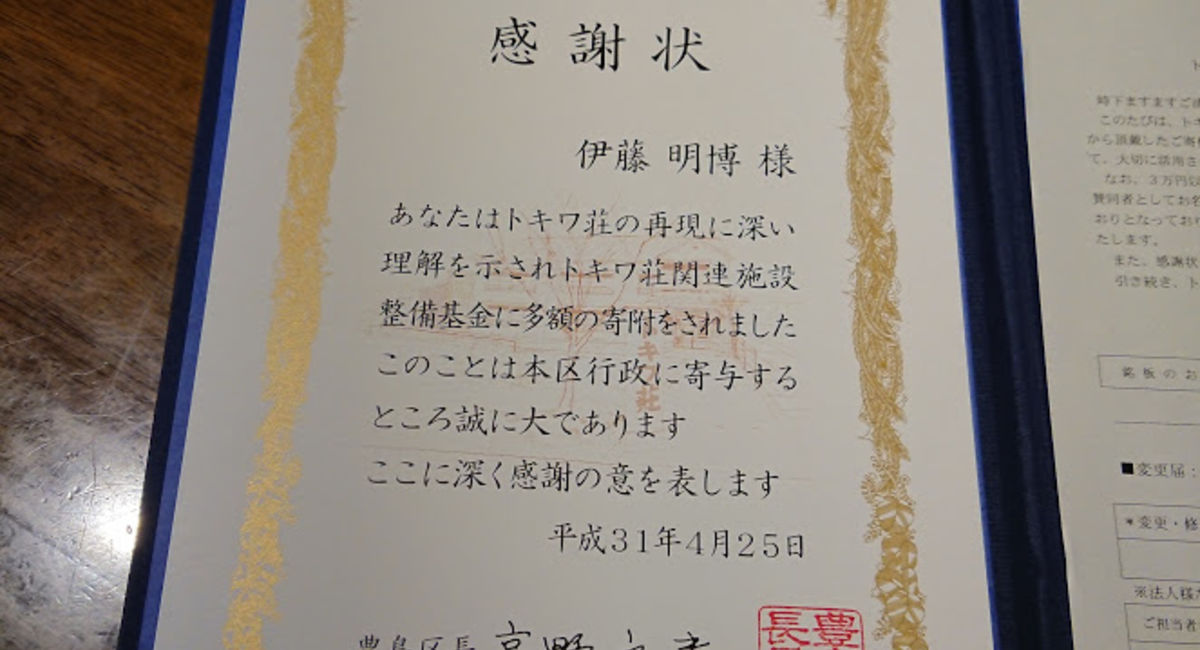 感謝状
伊藤 明博 様
あなたはトキワ荘の再現に深い
理解を示されトキワ荘関連施設
整備基金に多額の寄附をされました
このことは本区行政に寄与する
ところ誠に大であります
ここに深く感謝の意を表します
平成31年4月25日
豊島区長 高野
時下ますますご
このたびは、トキ
から頂戴したご寄
て、大切に活用さ
なお、3万円以
賛同者としてお名
おりとなってお
たします。
また、感謝状
引き続き、ト
銘板のお
■変更届:
*変更・修
※法人様
ご担当者